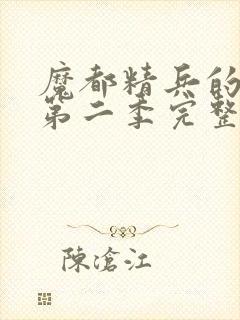 魔都精兵的
第二季完整
陳滄江